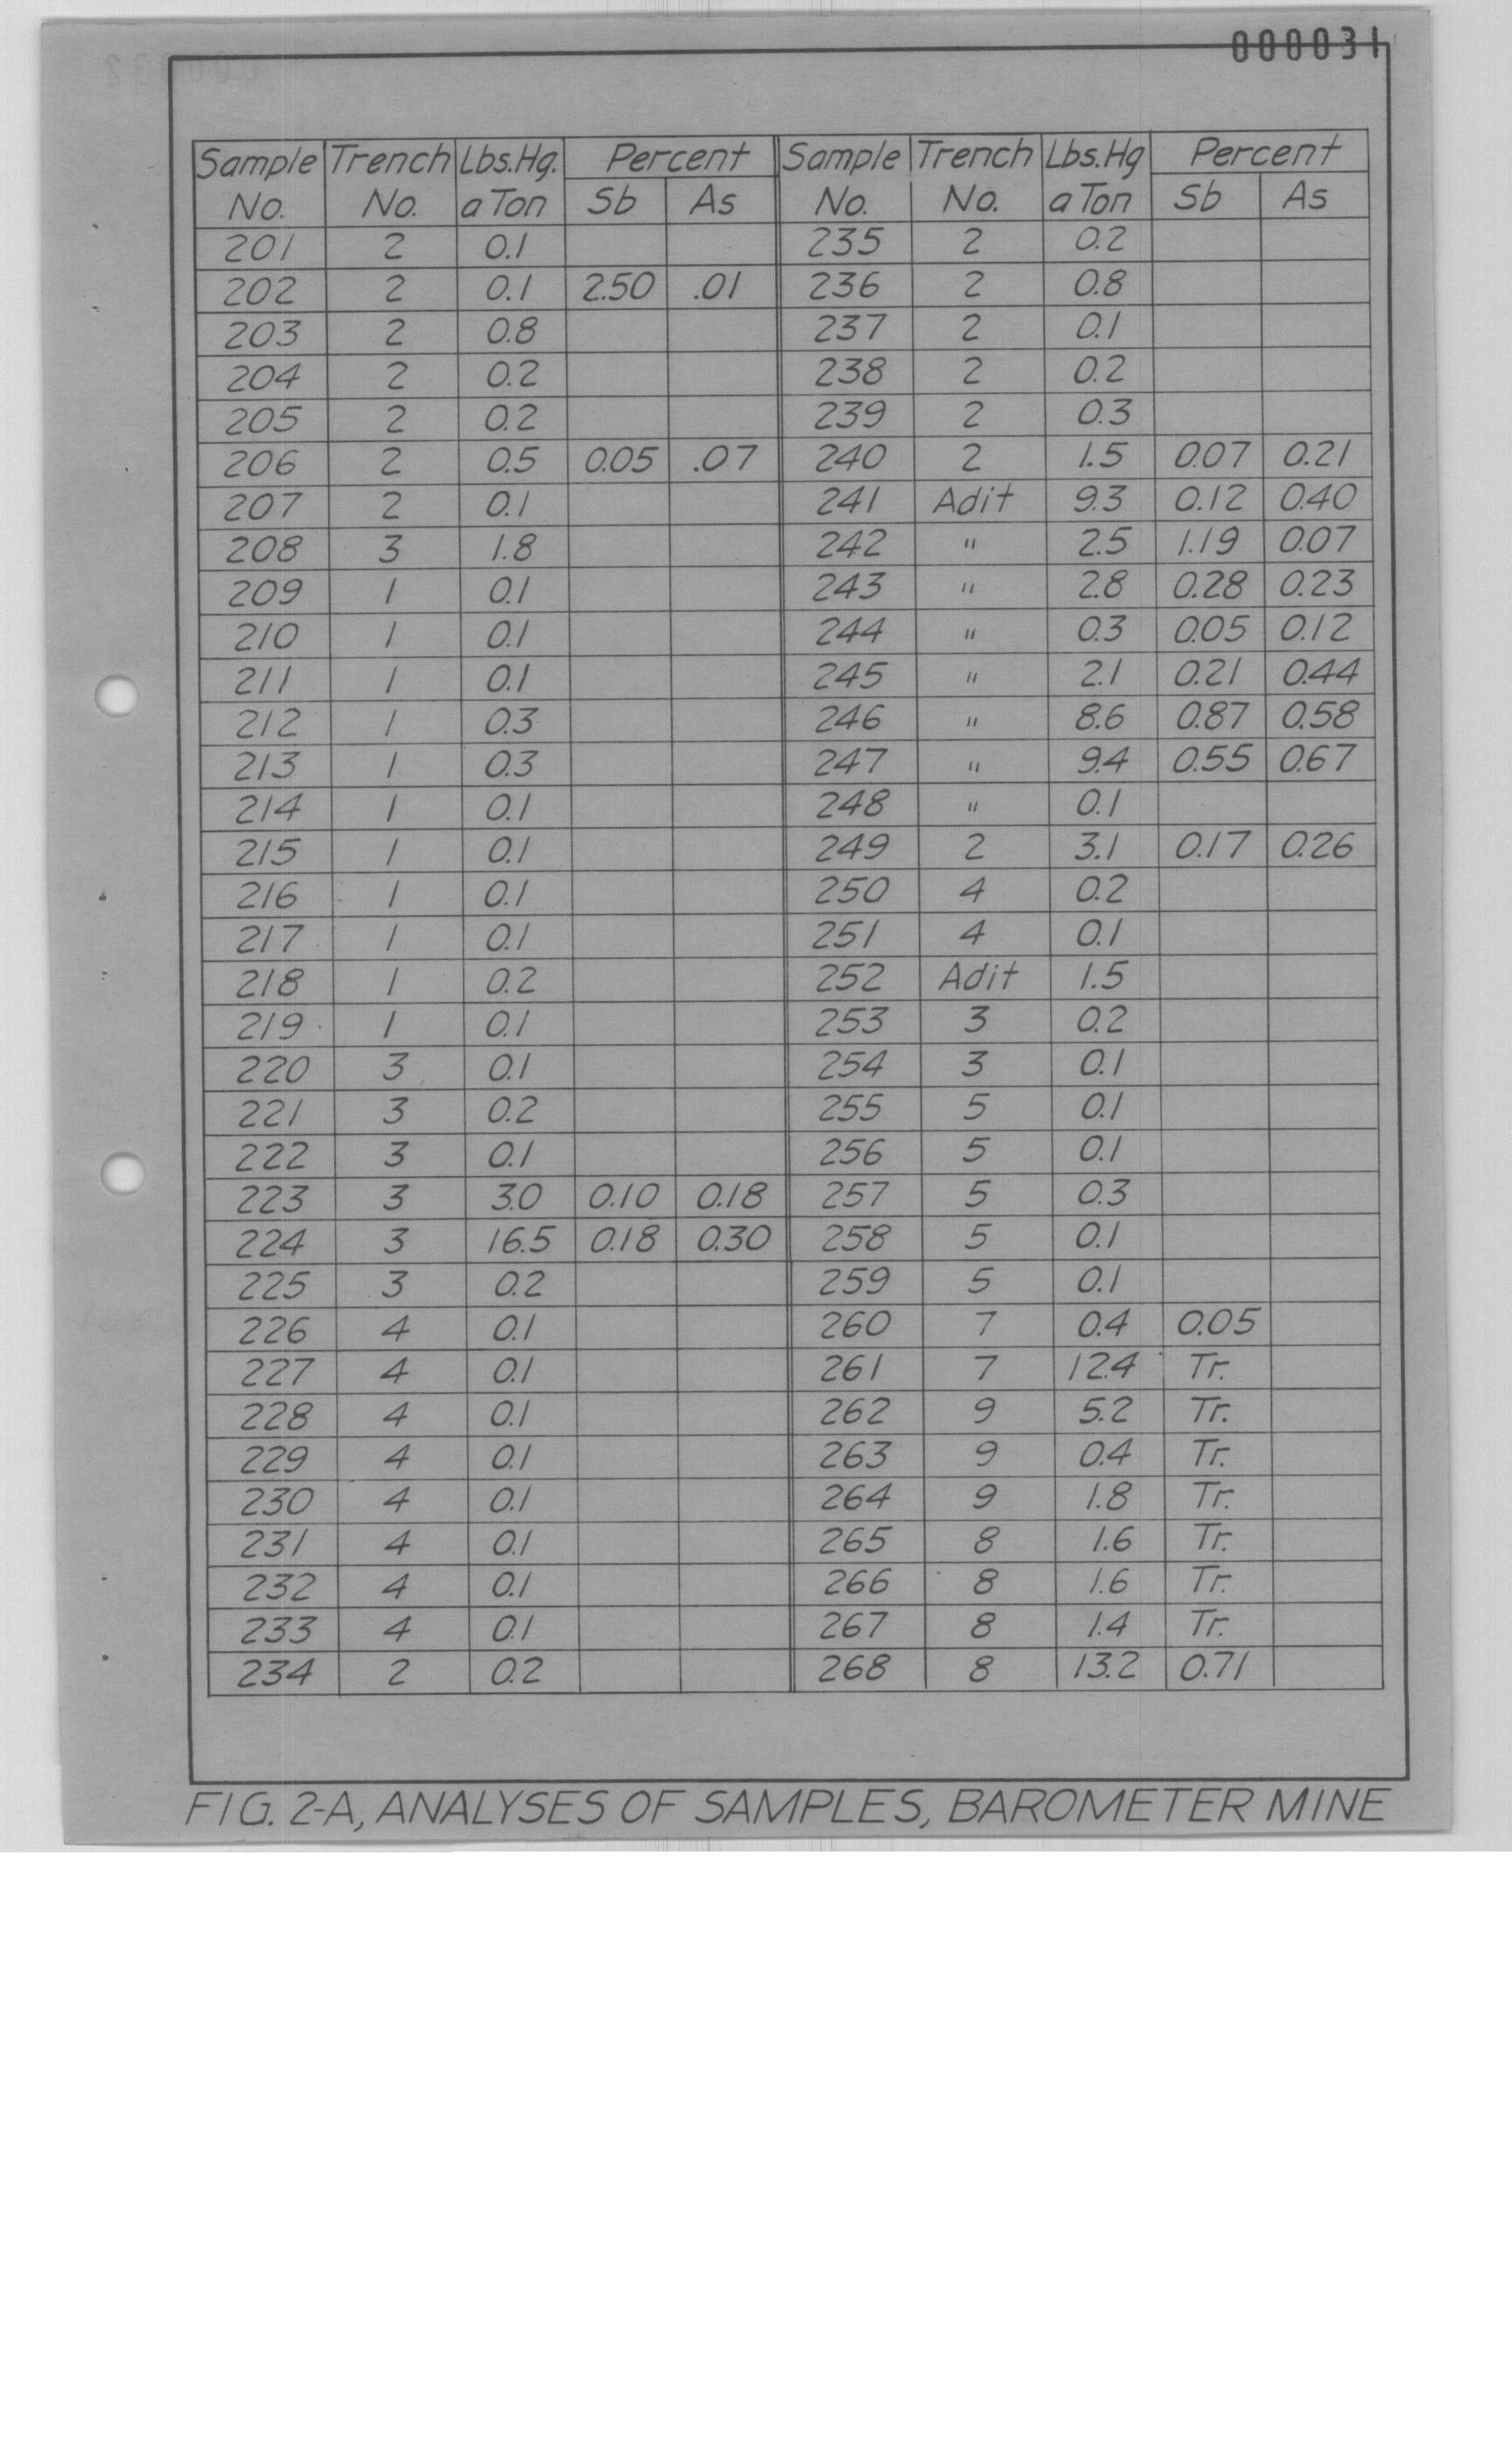 000031
Sample Trench Lbs.Hg. Percent Sample Trench Lbs.Hg Percent
No. No. a Ton Sb As No. No. a Ton Sb As
201 2 0.1 235 2 0.2
202 2 0.1 2.50 .01 236 2 0.8
203 2 0.8 237 2 0.1
204 2 0.2 238 2 0.2
205 2 0.2 239 2 0.3
206 2 0.5 0.05 .07 240 2 1.5 0.07 0.21
207 2 0.1 241 Adit 9.3 0.12 0.40
208 3 1.8 242 " 2.5 1.19 0.07
209 1 0.1 243 " 2.8 0.28 0.23
210 1 0.1 244 " 0.3 0.05 0.12
211 1 0.1 245 " 2.1 0.21 0.44
212 1 0.3 246 " 8.6 0.87 0.58
213 1 0.3 247 " 9.4 0.55 0.67
214 1 0.1 248 " 0.1
215 1 0.1 249 2 3.1 0.17 0.26
216 1 0.1 250 4 0.2
217 1 0.1 251 4 0.1
218 1 0.2 252 Adit 1.5
219 1 0.1 253 3 0.2
220 3 0.1 254 3 0.1
221 3 0.2 255 5 0.1
222 3 0.1 256 5 0.1
223 3 3.0 0.10 0.18 257 5 0.3
224 3 16.5 0.18 0.30 258 5 0.1
225 3 0.2 259 5 0.1
226 4 0.1 260 7 0.4 0.05
227 4 0.1 261 7 12.4 Tr.
228 4 0.1 262 9 5.2 Tr.
229 4 0.1 263 9 0.4 Tr.
230 4 0.1 264 9 1.8 Tr.
231 4 0.1 265 8 1.6 Tr.
232 4 0.1 266 8 1.6 Tr.
233 4 0.1 267 8 1.4 Tr.
234 2 0.2 268 8 13.2 0.71
FIG. 2-A, ANALYSES OF SAMPLES, BAROMETER MINE